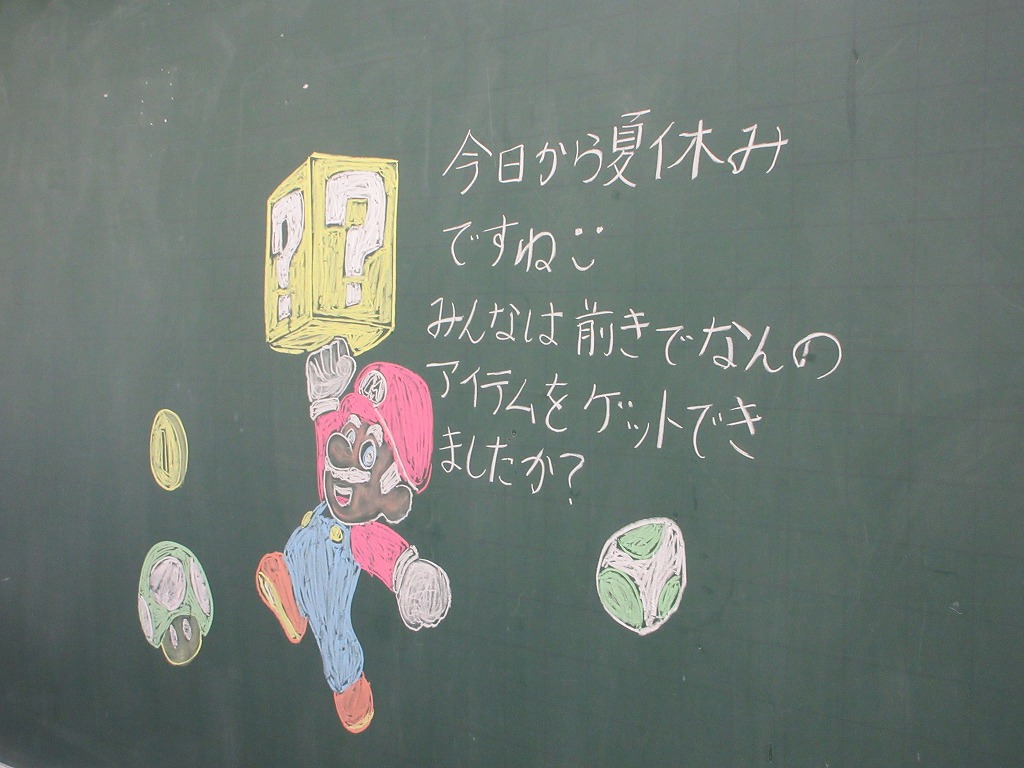 今日から夏休み
ですね
みんなは前きでなんの
アイテムをゲットでき
ましたか?
? ?
M